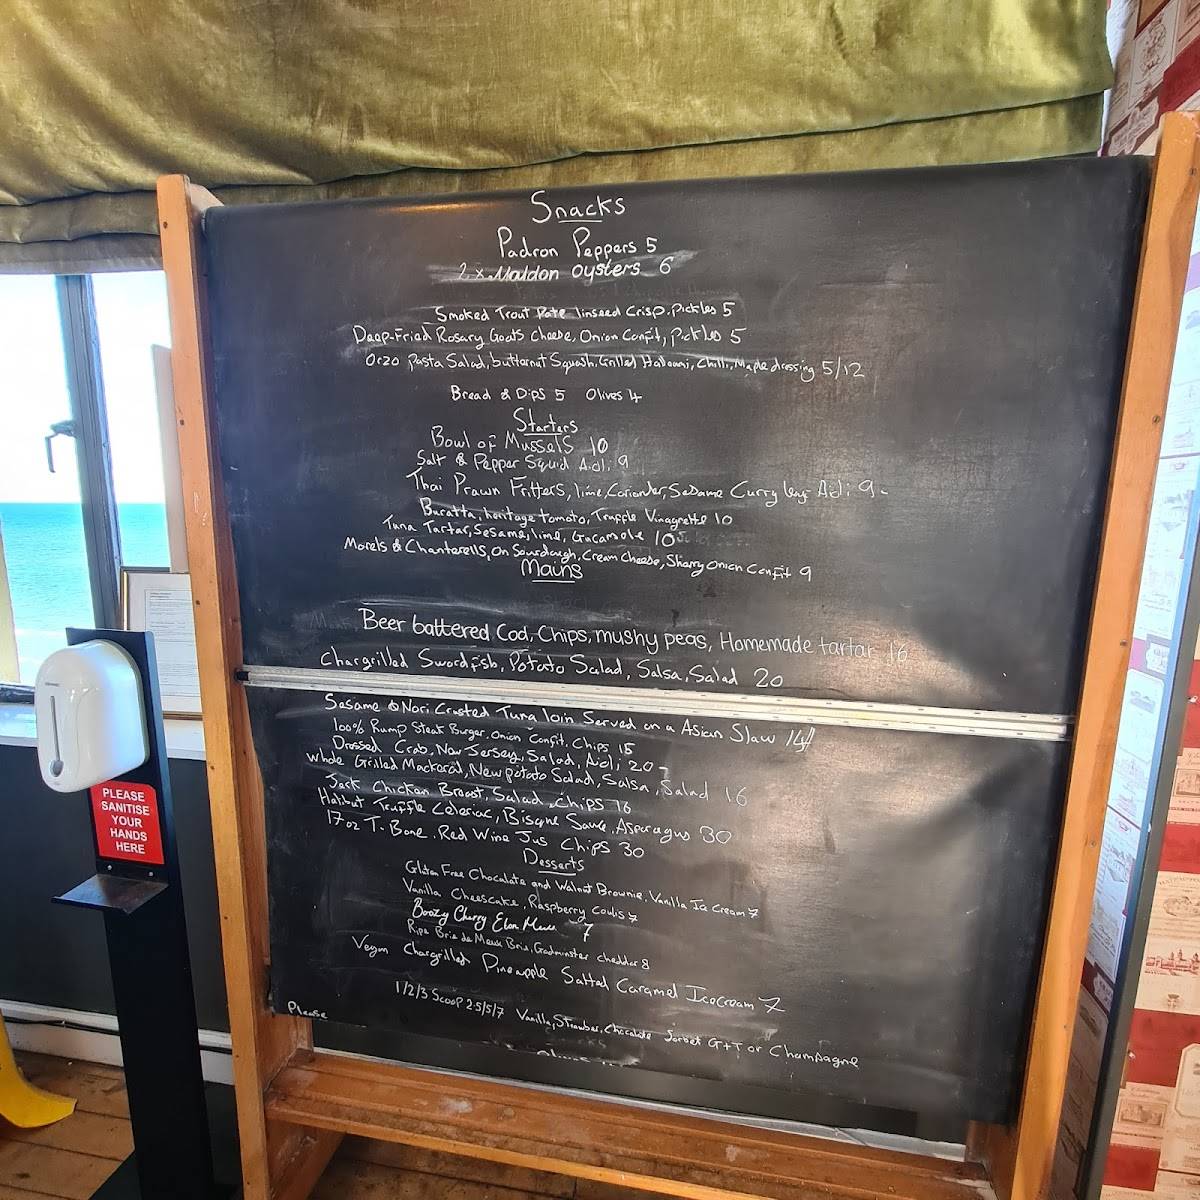 Snacks
Padron Peppers 5
2 x Maldon oysters 6
Smoked Trout Pate linseed Crisp. Pickles 5
Deep-Fried Rosary Goats Cheese, Onion Confit, Pickles 5
Orzo Pasta Salad, butternut Squash, Grilled Halloumi, Chilli, Maple dressing 5/12
Bread & Dips 5 Olives 4
Starters
Bowl of Mussels 10
Salt & Pepper Squid Aioli 9
Thai Prawn Fritters, lime, Coriander, Sesame Curry Aioli 9-
Buratta, heritage tomato, Truffle Vinagrette 10
Tuna Tartar, Sesame, lime, Gucamole 10
Morels & Chanterells, On Sourdough, Cream Cheese, Sherry Onion Confit 9
Mains
Beer battered Cod, Chips, mushy peas, Homemade tartar 16
Chargrilled Swordfish, Potato Salad, Salsa, Salad 20
Sesame & Nori Crusted Tuna loin Served on a Asian Slaw 14
100% Rump Steak Burger, Onion Confit, Chips 15
Dressed Crab, New Jersey, Salad, Aioli 20-
Whole Grilled Mackeral, New Potato Salad, Salsa, Salad 16
Jerk Chicken Breast, Salad, Chips 16
Halibut Truffle Celeriac, Bisque Sauce, Asparagus 30
17oz T-Bone. Red Wine Jus Chips 30
Desserts
Gluten Free Chocolate and Walnut Brownie, Vanilla Ice Cream 7
Vanilla Cheescake, Raspberry Coulis 7
Boozy Cherry Eton Mess 7
Ripe Brie de Meaux Brie, Godminster cheddar 8
Vegan Chargrilled Pineapple Salted Caramel Icecream 7
1/2/3 Scoop 2.5/5/7 Vanilla, Strawber, Chocolate Sorbet G+T or Champagne
Please
PLEASE
SANITISE
YOUR
HANDS
HERE